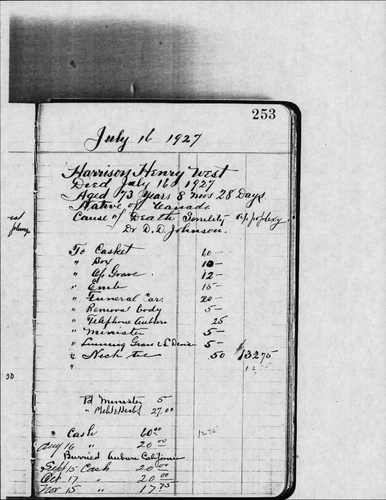 253
July 16 1927
Harrison Henry West
Died July 16 1927
Aged 73 Years 8 Mos 28 Days
Native of Canada
Cause of Death Senility apoplexy
Dr D. D. Johnson.
To Casket 60—
" Box 10—
" Op Grave. 12—
" Emb 15—
" Funeral Car. 20—
" Removal body 5—
" Telephone Auburn 25
" Minister 5—
" Linning Grave 5—
" Neck tie 50 $132.75
"
Pd Minister 5
27.00
" Cash 60.00
Aug 16 " 20.00
Burried Auburn California
Sept 15 Cash 20.00
Oct 17 " 20.00
Nov 15 " 17.75